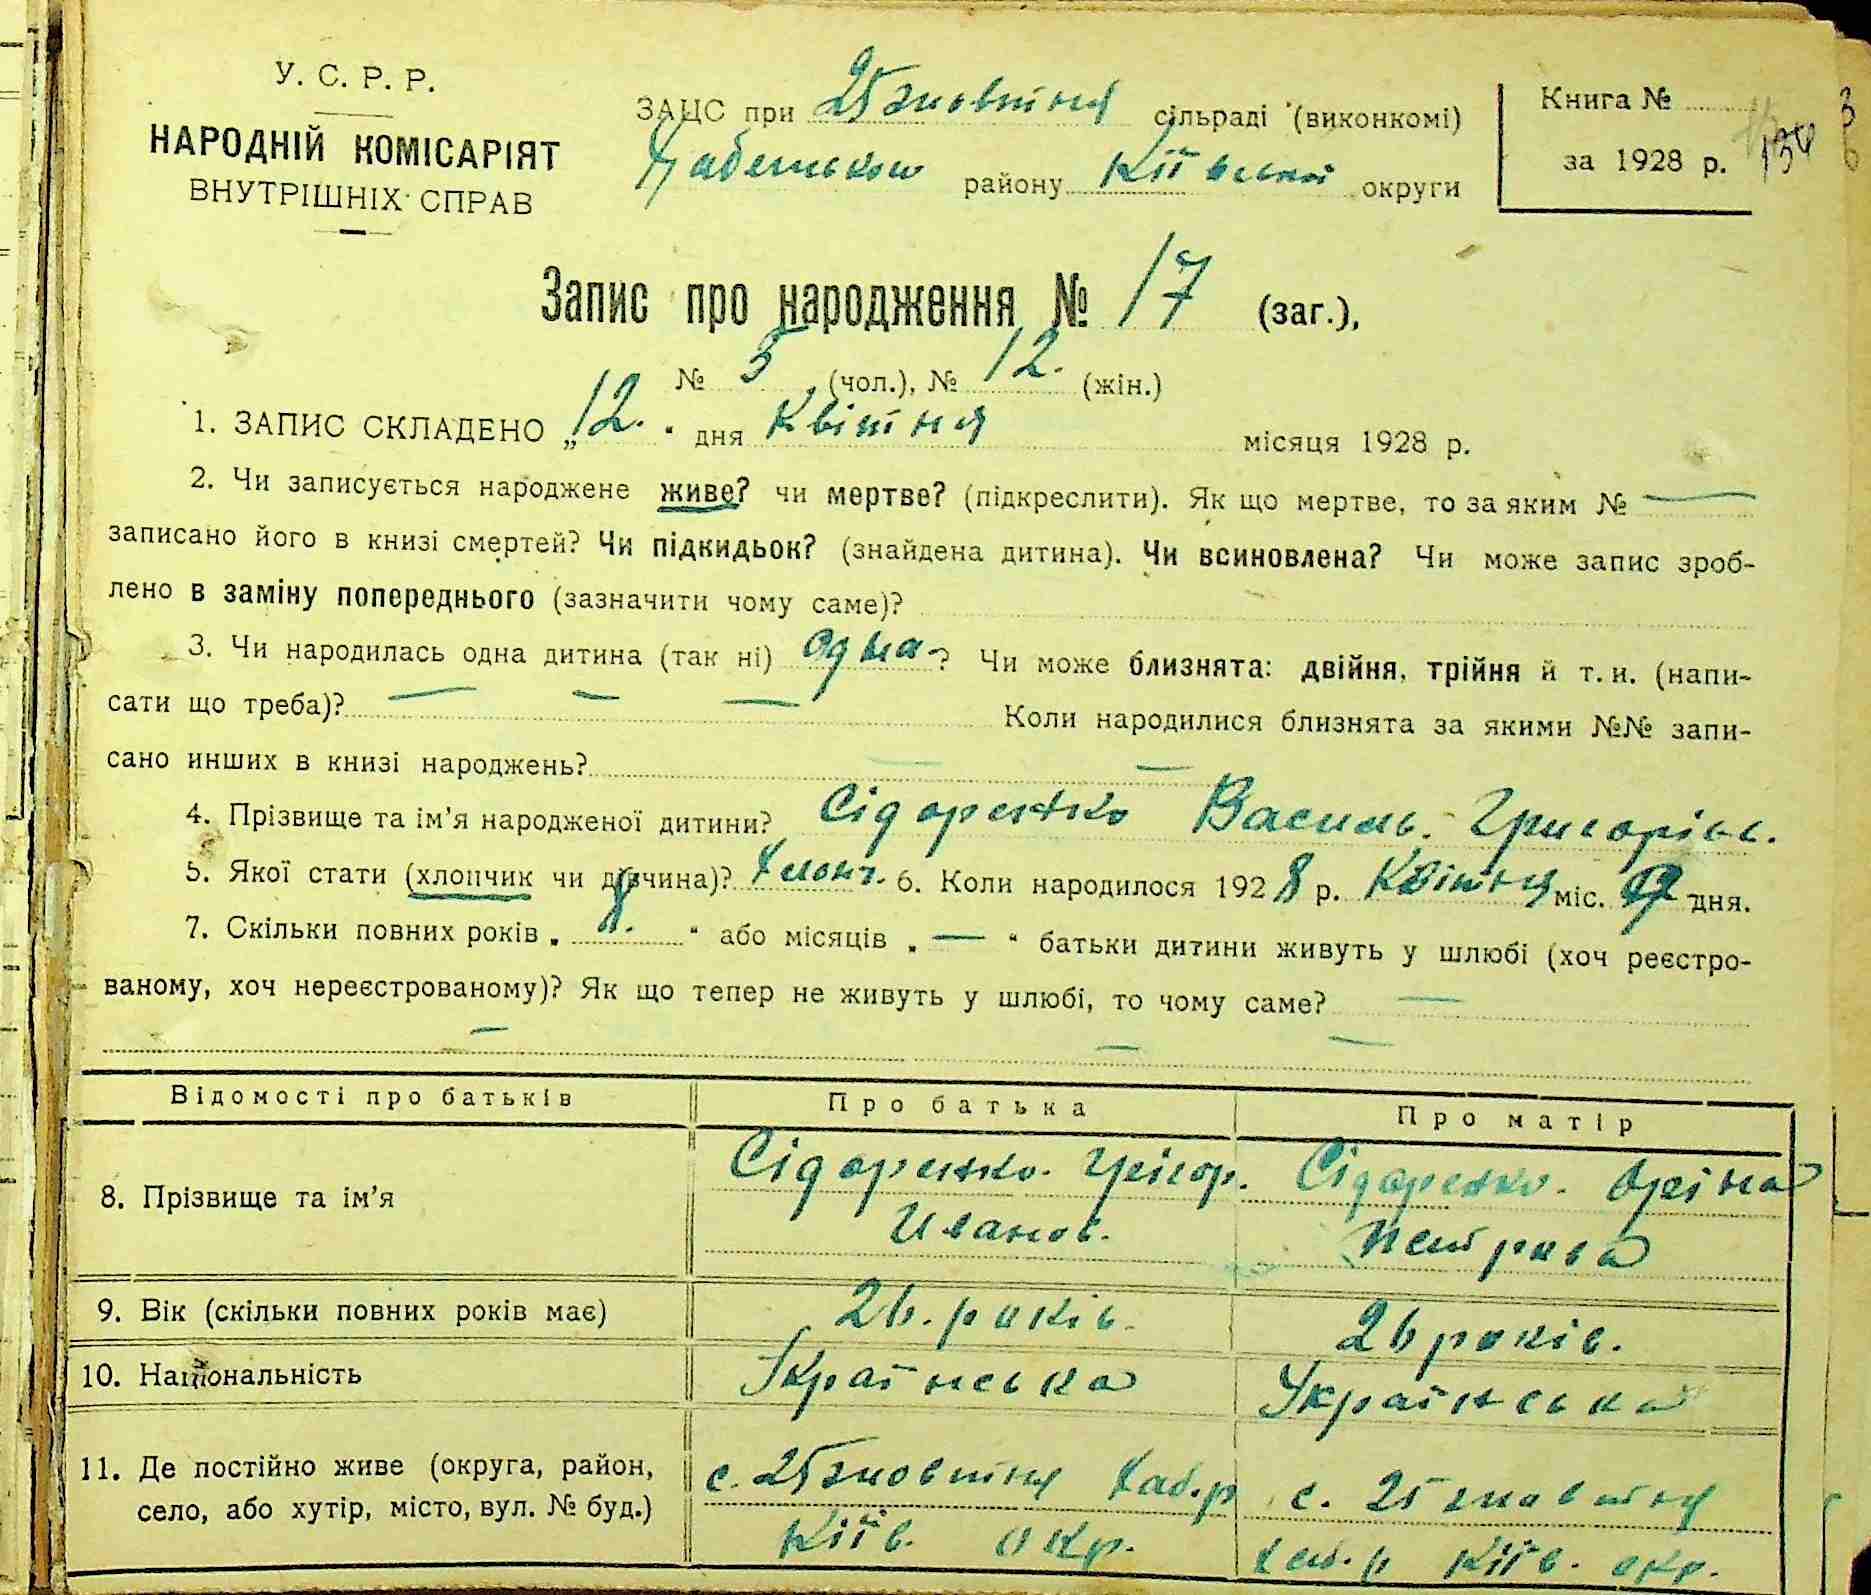 У. С. Р. Р.
НАРОДНІЙ КОМІСАРІЯТ
ВНУТРІШНІХ СПРАВ
ЗАЦС при 25 жовтня сільраді (виконкомі)
району Київської округи
Книга №
за 1928 р.
134
Запис про народження № 17 (заг.),
№ 5 (чол.), № 12. (жін.)
1. ЗАПИС СКЛАДЕНО „12." дня Квітня місяця 1928 р.
2. Чи записується народжене живе? чи мертве? (підкреслити). Як що мертве, то за яким № —
записано його в книзі смертей? Чи підкидьок? (знайдена дитина). Чи всиновлена? Чи може запис зроб-
лено в заміну попереднього (зазначити чому саме)?
3. Чи народилась одна дитина (так ні) одна ? Чи може близнята: двійня, трійня й т. и. (напи-
сати що треба)? — — — Коли народилися близнята за якими №№ запи-
сано инших в книзі народжень? — —
4. Прізвище та ім'я народженої дитини? Сідоренко Василь Григорів.
5. Якої стати (хлопчик чи дівчина)? Хлопч. 6. Коли народилося 1928 р. Квітня міс. 9 дня.
7. Скільки повних років „ 8. " або місяців „ — " батьки дитини живуть у шлюбі (хоч реєстро-
ваному, хоч нереєстрованому)? Як що тепер не живуть у шлюбі, то чому саме? —
— — —
Відомості про батьків Про батька Про матір
8. Прізвище та ім'я Сідоренко Грігор. Сідоренко Оріна
Иванов. Петрова
9. Вік (скільки повних років має) 26. років. 26 років.
10. Національність Українська Українська
11. Де постійно живе (округа, район, с. 25 жовтня Хаб.р с. 25 жовтня
село, або хутір, місто, вул. № буд.) Київ. окр. Хаб. р Київ. окр.